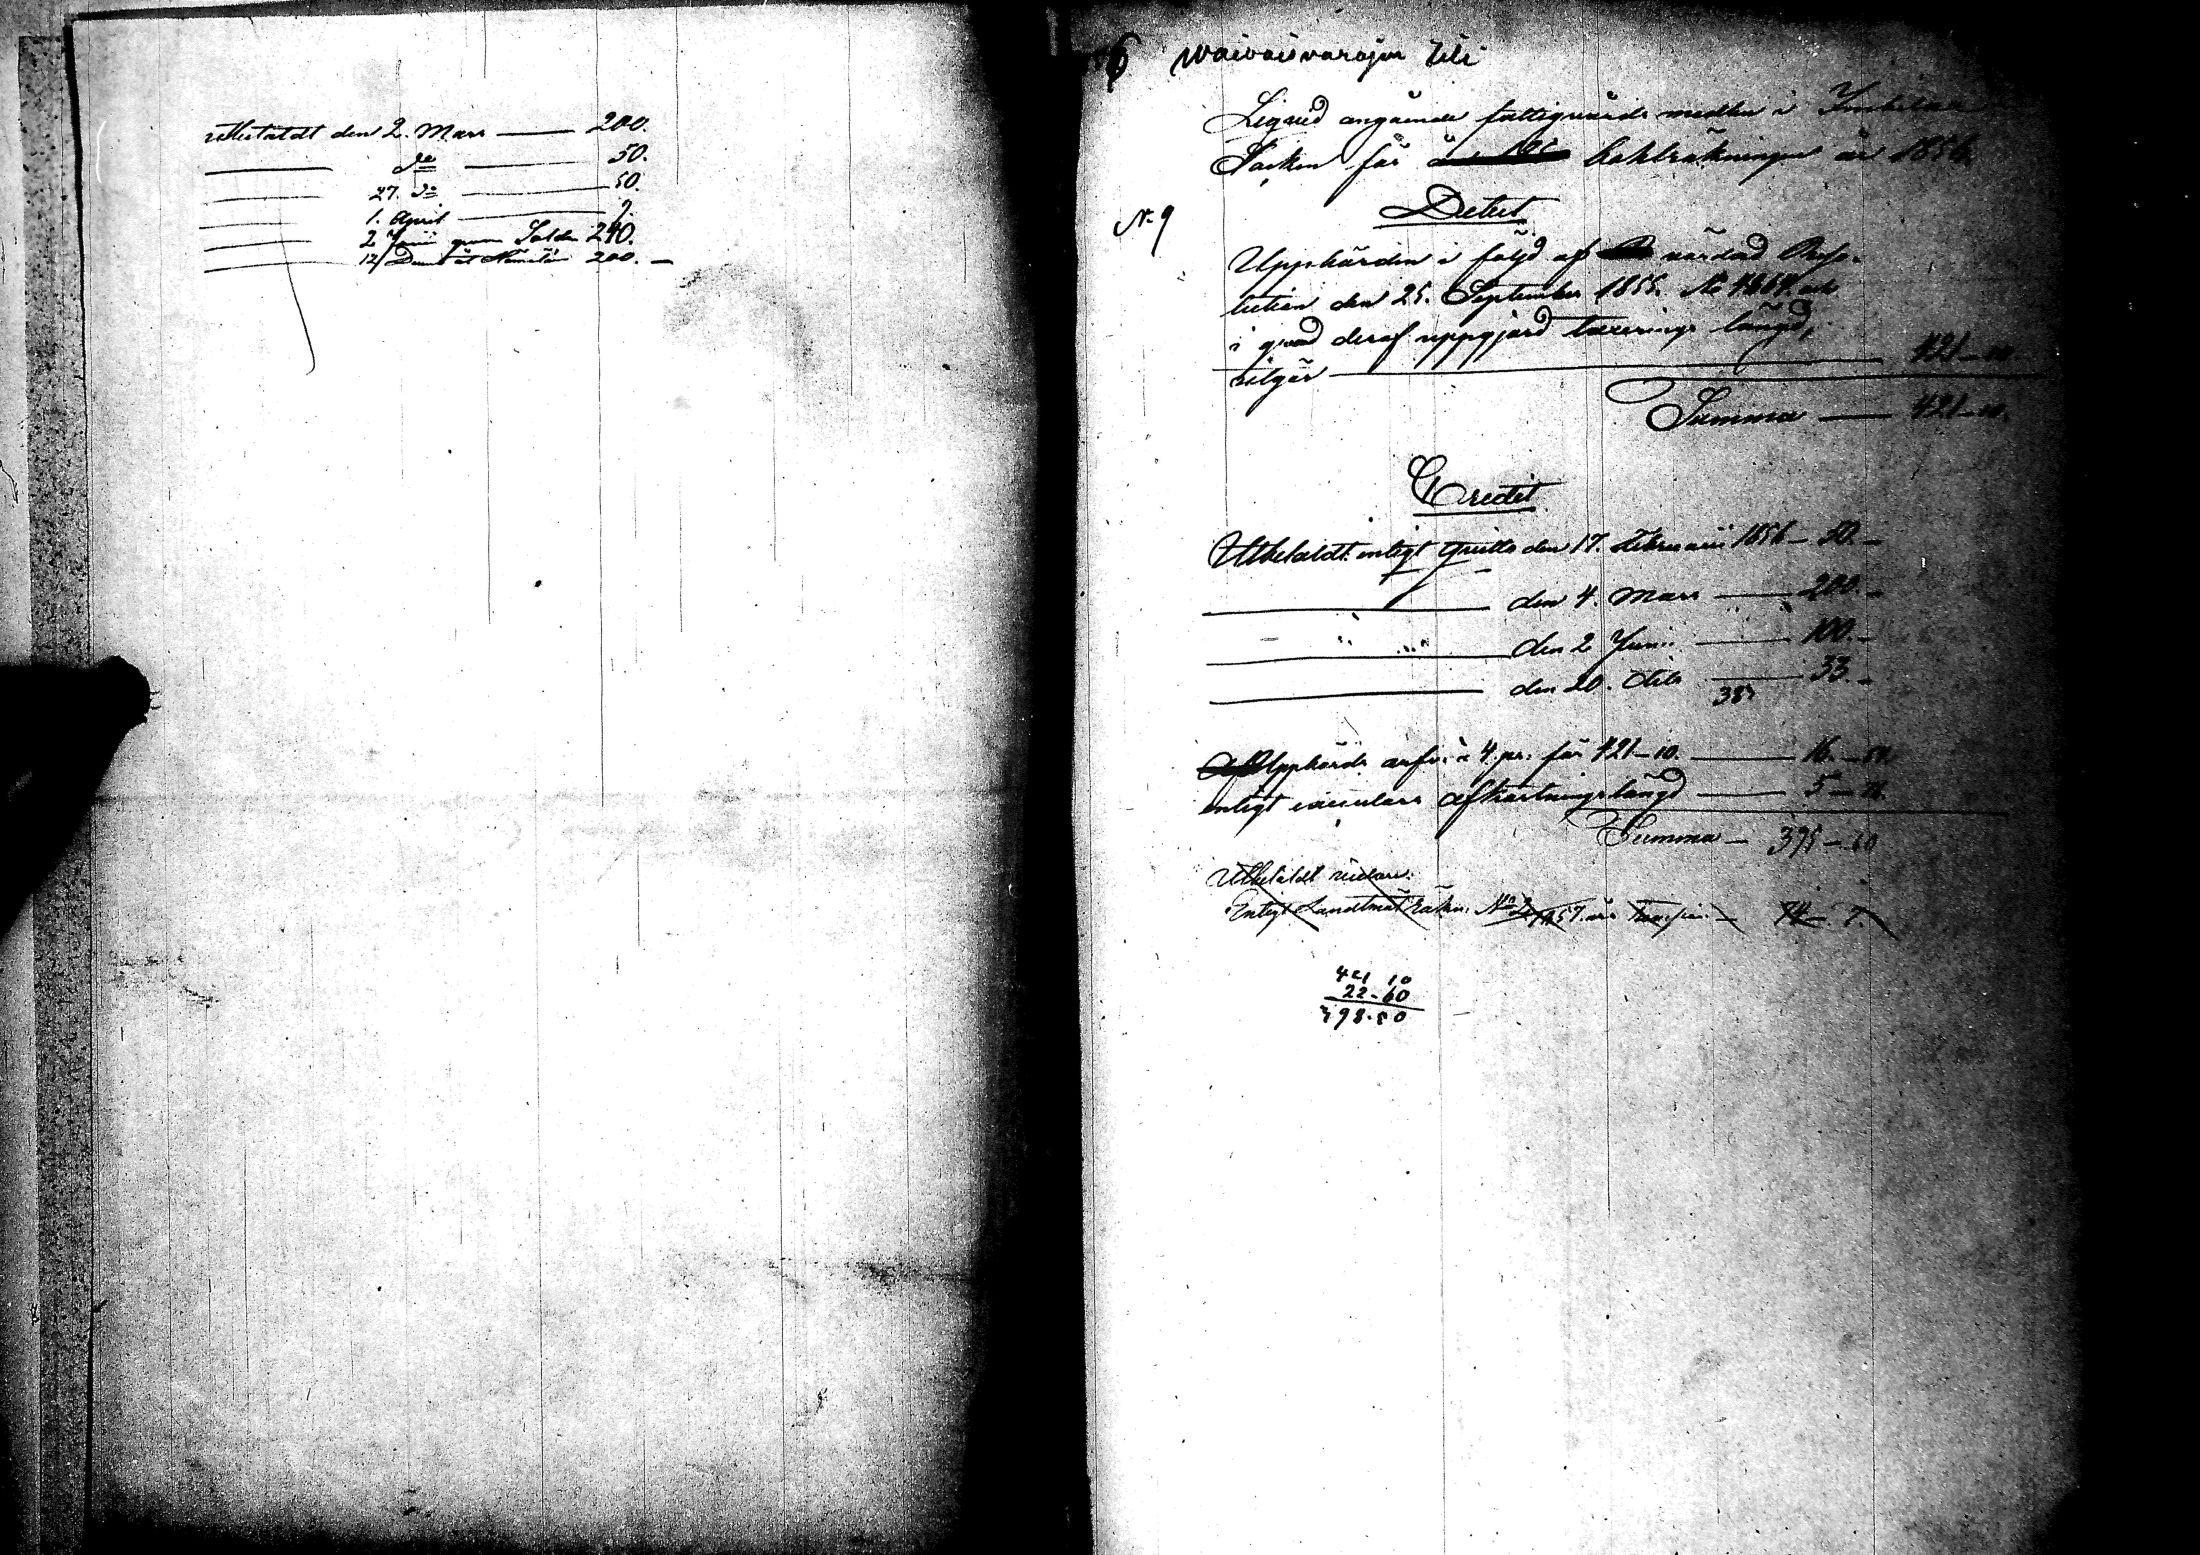 utbetaldt den 2. Mars — 200.
do — 50.
27. do — 50.
1. April
2 Junii 240.
12/ 200. —
6 waivaisvarojen tili
Liqvid angående fattigvårds medlen i
Socken för bokräkningen år 1856.
No 9
Debet
Uppbörden i följd af vårdad Reso-
lution den 25. September 1855. No och
i grund deraf uppgjord taxerings längd,
utgör — 421-10.
Summa — 421-10.
Credit
Utbetaldt enligt Quitto den 17. Februarii 1856 — 50. —
den 4. Mars — 200. —
den 2 Junii — 100. —
den 20. dito — 33. —
383
Uppbörds arfv: à 4. pr: för 421-10. — 16. —
enligt afkortningslängd — 5 —
Summa — 395 — 60
Utbetaldt vidare:
Enligt Landtmät Räkn: No 57. års — 74 — 7.
421 10
22-60
398-50